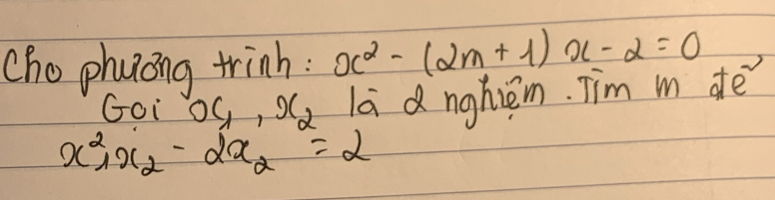 Cho phương trình: x² - (2m + 1) x - 2 = 0
Gọi x₁, x₂ là 2 nghiệm. Tìm m để
x₁²x₂ - 2x₂ = 2